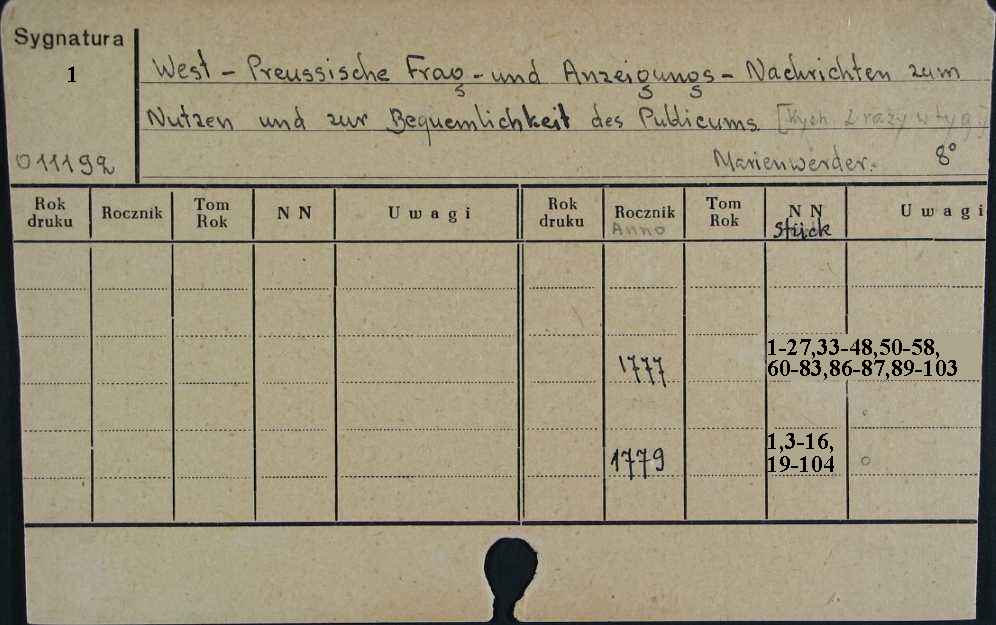 Sygnatura
1
West-Preussische Frag-und Anzeigungs-Nachrichten zum
Nutzen und zur Bequemlichkeit des Publicums. [Wych. 2 razy w tyg.]
011192
Marienwerder. 8°
Rok druku Rocznik Tom Rok N N Uwagi Rok druku Rocznik Tom Rok N N Uwagi
Anno Stück
1777 1-27,33-48,50-58,
60-83,86-87,89-103
1779 1,3-16,
19-104